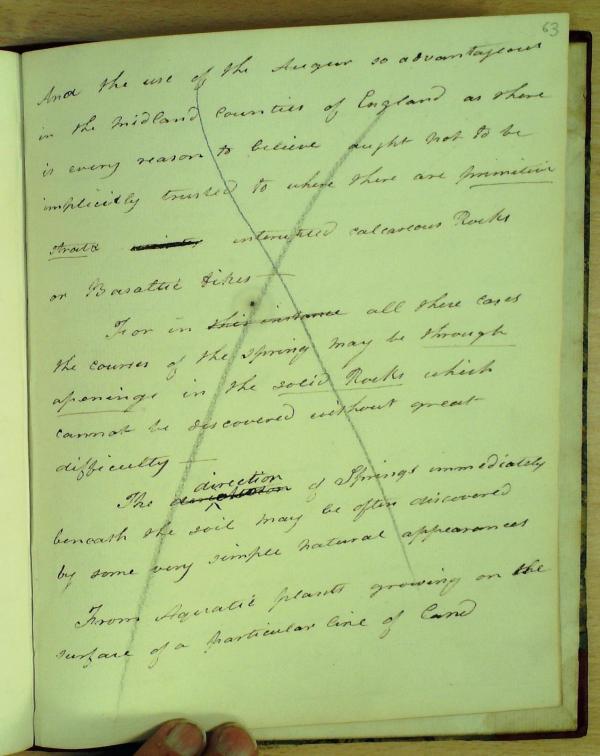 63
And the use of the Augur so advantageous
in the midland counties of England as there
is every reason to believe ought not to be
implicitly trusted to where there are primitive
strata interrupted calcareous Rocks
or Basaltic dikes —
For in this instance all these cases
the courses of the spring may be through
openings in the solid Rocks which
cannot be discovered without great
difficulty —
direction
The of Springs immediately
beneath the soil may be often discovered
by some very simple natural appearances
From Aquatic plants growing on the
surface of a particular line of land